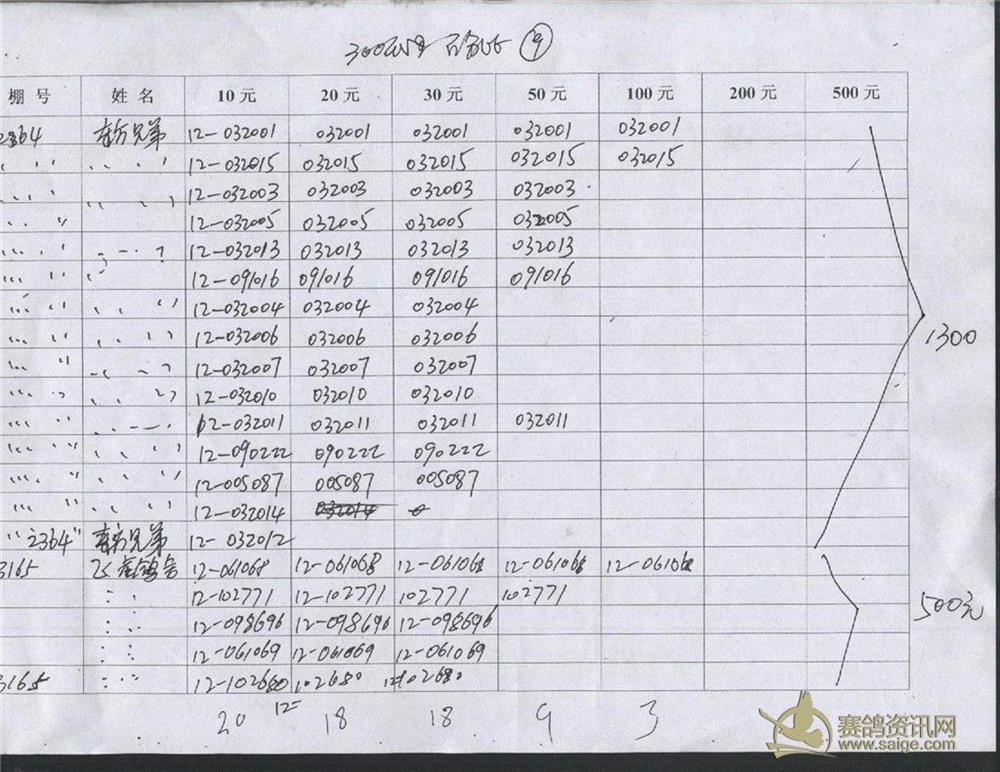 300 ⑨
棚号 姓名 10元 20元 30元 50元 100元 200元 500元
2364 东方兄弟 12-032001 032001 032001 032001 032001
〃 〃 12-032015 032015 032015 032015 032015
〃 〃 12-032003 032003 032003 032003
〃 12-032005 032005 032005 032005
〃 〃 12-032013 032013 032013 032013
〃 〃 12-091016 091016 091016 091016
〃 〃 12-032004 032004 032004
〃 〃 12-032006 032006 032006
1300
〃 〃 12-032007 032007 032007
〃 〃 12-032010 032010 032010
〃 〃 12-032011 032011 032011 032011
〃 〃 12-090222 090222 090222
〃 〃 12-005087 005087 005087
〃 〃 12-032014 032014 0
"2364" 东方兄弟 12-032012
3165 飞 12-061068 12-061068 12-061068 12-061068 12-061068
〃 12-102771 12-102771 102771 102771
500元
〃 12-098696 12-098696 12-098696
〃 12-061069 12-061069 12-061069
3165 〃 12-102680 102680 12-102680
20 12- 18 18 9 3
赛鸽资讯网
www.saige.com